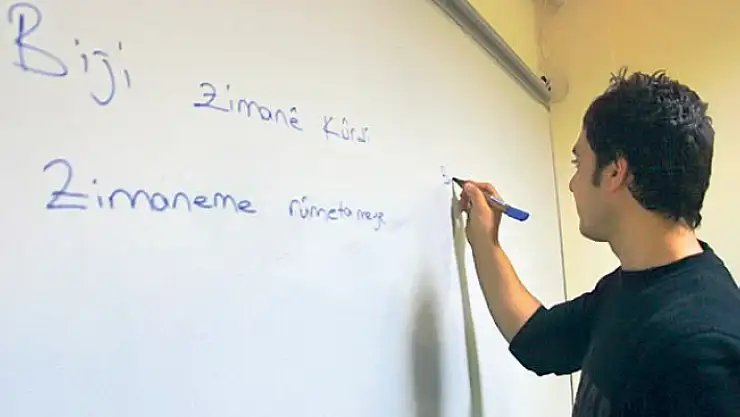 Biji
Zimanê Kûrdi
Zimaneme rûmetameye